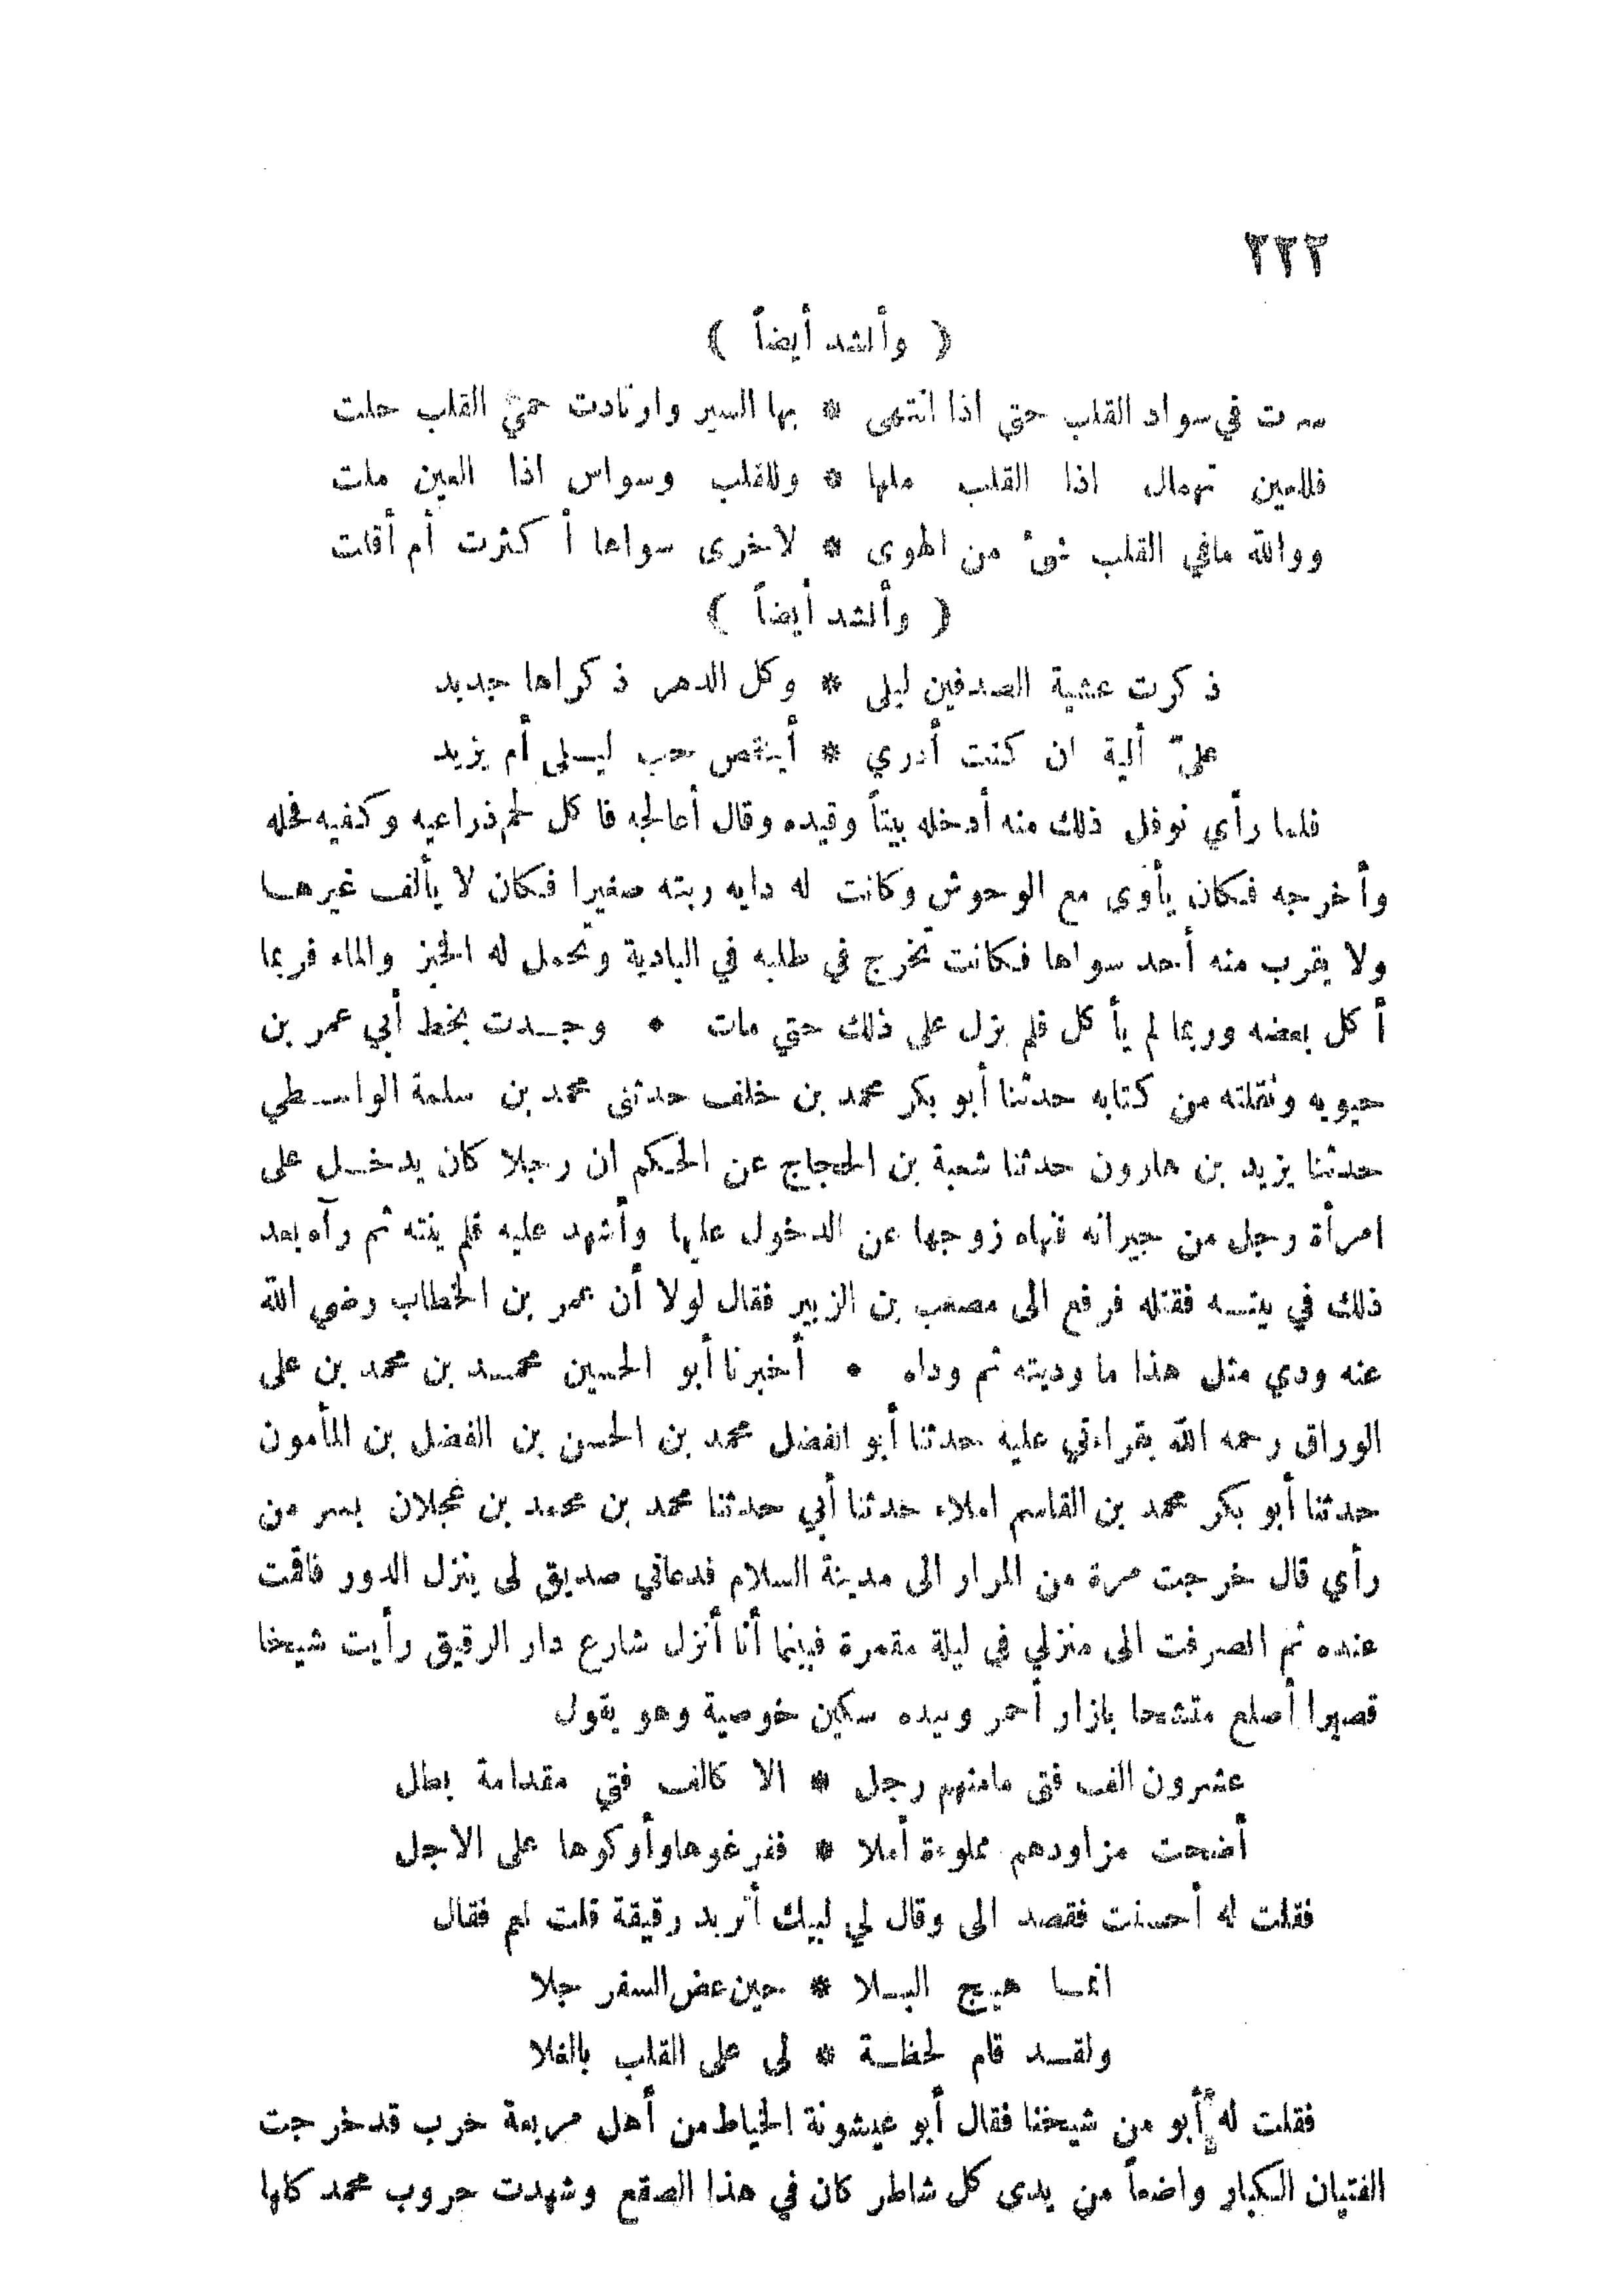 ٢٢٢
( وأنشد أيضاً )
سرت في سواد القلب حتى اذا انتهى * بها السير وارتادت حمى القلب حلت
فللعين تهمال اذا القلب ملها * وللقلب وسواس اذا العين ملت
ووالله مافي القلب شئ من الهوى * لاخرى سواها أ كثرت أم أقلت
( وأنشد أيضاً )
ذ كرت عشية الصدفين ليلى * وكل الدهر ذ كراها جديد
علىّ ألية ان كنت أدري * أينقص حب ليـلى أم يزيد
فلما رأي نوفل ذلك منه أدخله بيتاً وقيده وقال أعالجه فا كل لحم ذراعيه وكفيه فحله
وأخرجه فكان يأوى مع الوحوش وكانت له دايه ربته صغيرا فكان لا يألف غيرهـا
ولا يقرب منه أحد سواها فكانت تخرج في طلبه في البادية وتحمل له الخبز والماء فربما
أ كل بعضه وربما لم يأ كل فلم يزل على ذلك حتي مات • وجـدت بخط أبي عمر بن
حيويه ونقلته من كتابه حدثنا أبو بكر محمد بن خلف حدثنى محمد بن سلمة الواسـطي
حدثنا يزيد بن هارون حدثنا شعبة بن الحجاج عن الحكم ان رجلا كان يدخـل على
امرأة رجل من جيرانه فنهاه زوجها عن الدخول عليها وأشهد عليه فلم ينته ثم رآه بعد
ذلك في بيتـه فقتله فرفع الى مصعب بن الزبير فقال لولا أن عمر بن الخطاب رضي الله
عنه ودي مثل هذا ما وديته ثم وداه • أخبرنا أبو الحسين محمـد بن محمد بن على
الوراق رحمه الله بقراءتي عليه حدثنا أبو الفضل محمد بن الحسن بن الفضل بن المأمون
حدثنا أبو بكر محمد بن القاسم املاء حدثنا أبي حدثنا محمد بن محمد بن عجلان بسر من
رأي قال خرجت مرة من المرار الى مدينة السلام فدعاني صديق لى ينزل الدور فاقمت
عنده ثم انصرفت الى منزلي في ليلة مقمرة فبينما أنا أنزل شارع دار الرقيق رأيت شيخا
قصيرا أصلع متشحا بازار أحمر وبيده سكين خوصية وهو يقول
عشرون الف فتى مامنهم رجل * الا كالف فتي مقدامة بطل
أضحت مزاودهم مملوءة أملا * ففرغوهاوأوكوها على الاجل
فقلت له أحسنت فقصد الى وقال لي لبيك أتريد رقيقة قلت نعم فقال
انمـا هيج البـلا * حين عض السفر جلا
ولقـد قام لحظـة * لى على القلب بالغلا
فقلت له أبو من شيخنا فقال أبو عيشونة الخياط من أهل مربعة خرب قدخرجت
الفتيان الكبار واضعاً من يدى كل شاطر كان في هذا الصقع وشهدت حروب محمد كلها